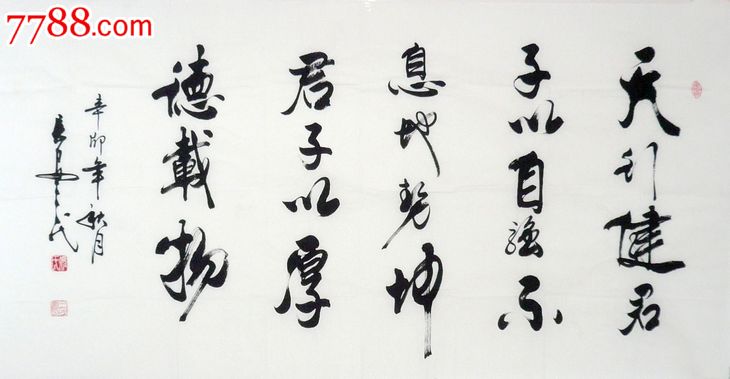 天行健君
子以自强不
息地势坤
君子以厚
德載物
辛卯年秋月
7788.com